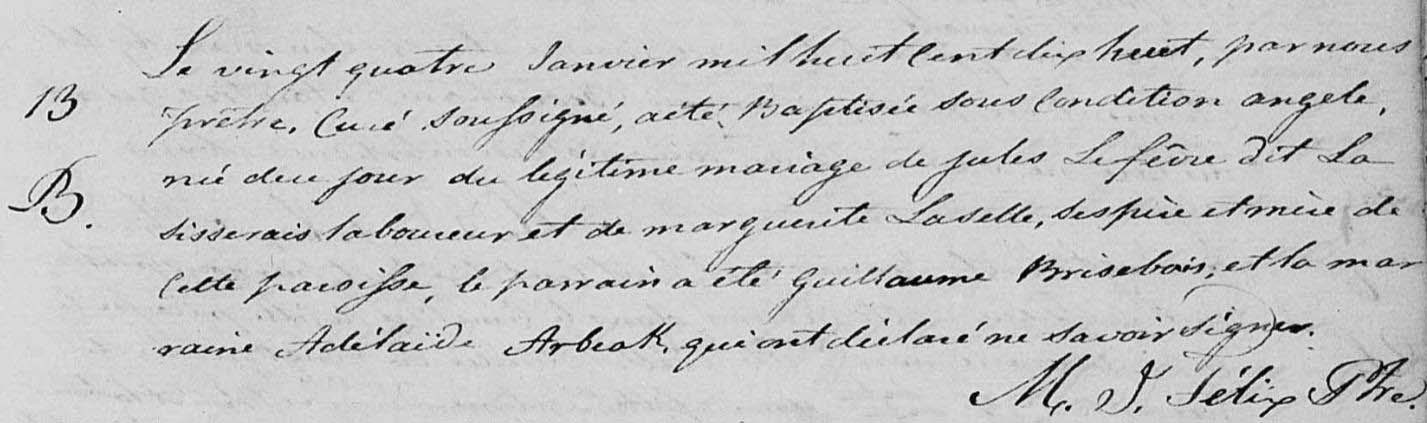 Le vingt quatre Janvier mil huit Cent dix huit, par nous
13 prêtre, Curé soussigné, a été Baptisée sous Condition angele,
née de ce jour du légitime mariage de jules Lefêvre dit La
B. sisserais laboureur et de marguerite Laselle, ses père et mère de
Cette paroisse, le parrain a été Guillaume Brisebois, et la mar
raine Adélaïde Arbeak, qui ont déclaré ne savoir signer.
M. J. Félix Ptre.